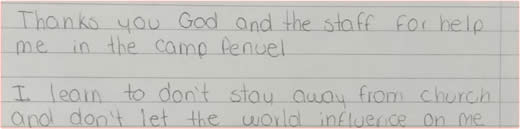 Thanks you God and the staff for help
me in the camp Penuel
I learn to don't stay away from church
and don't let the world influence on me